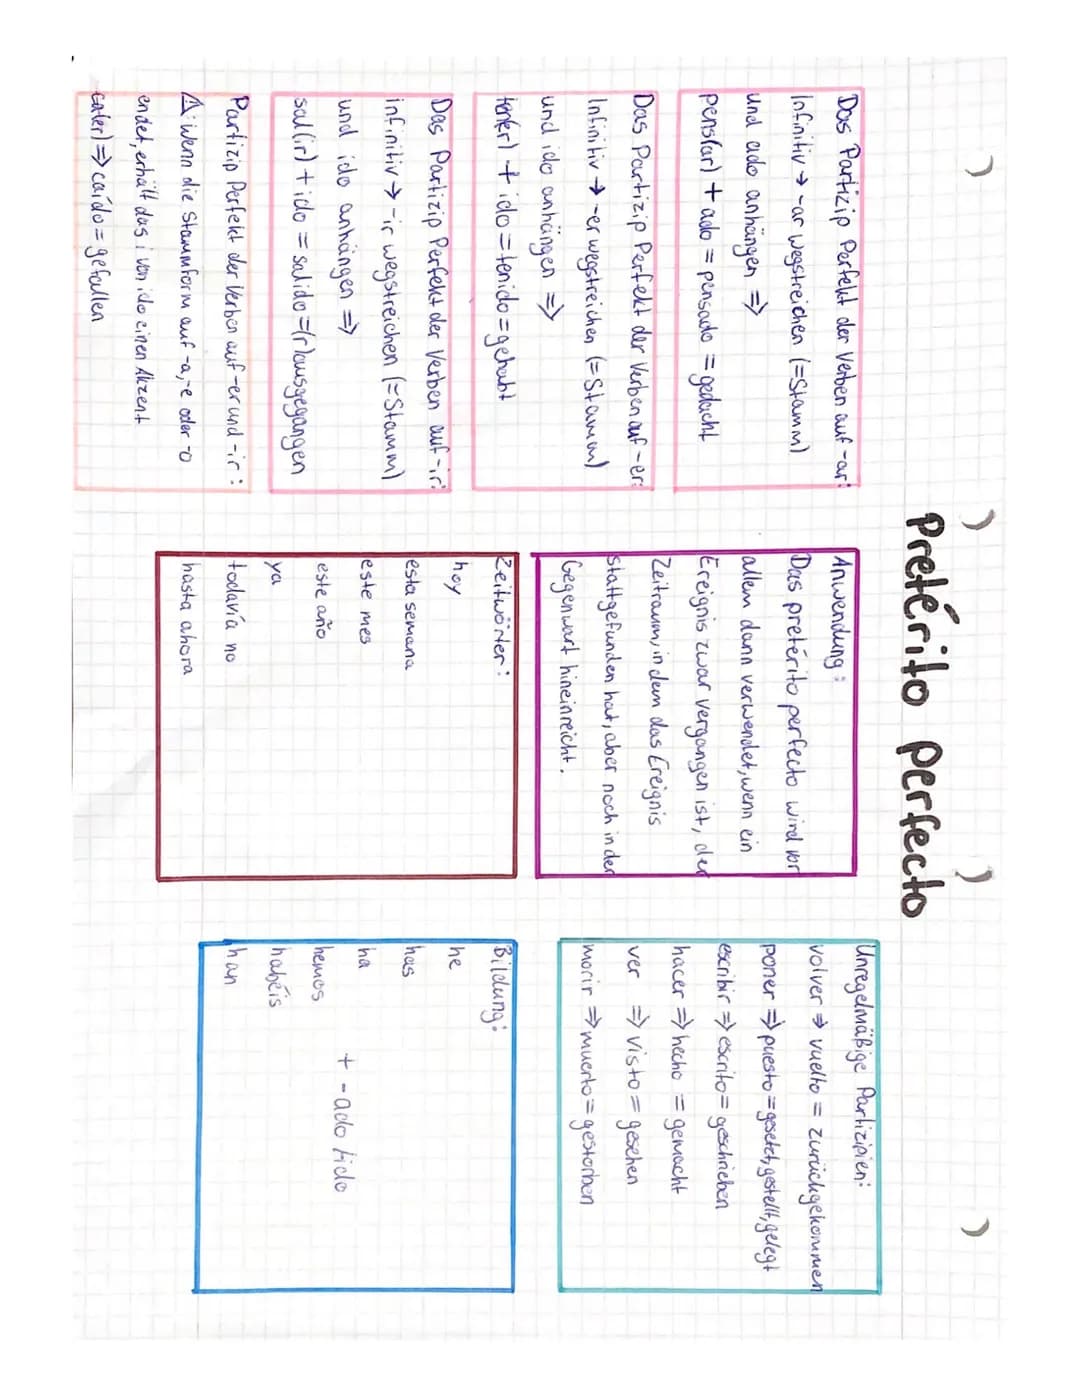 Pretérito perfecto
Das Partizip Perfekt der Verben auf -ar:
Infinitiv → -ar wegstreichen (=Stamm)
und ado anhängen ⇒
pens(ar) + ado = pensado = gedacht
Das Partizip Perfekt der Verben auf -er:
Infinitiv → -er wegstreichen (=Stamm)
und ido anhängen ⇒
ten(er) + ido = tenido = gehabt
Das Partizip Perfekt der Verben auf -ir:
infinitiv → -ir wegstreichen (=Stamm)
und ido anhängen ⇒
sal(ir) + ido = salido = (r)ausgegangen
Partizip Perfekt der Verben auf -er und -ir:
⚠: Wenn die Stammform auf -a, -e oder -o
endet, erhält das i von ido einen Akzent
ca(er) ⇒ caído = gefallen
Anwendung:
Das pretérito perfecto wird vor
allem dann verwendet, wenn ein
Ereignis zwar vergangen ist, der
Zeitraum, in dem das Ereignis
stattgefunden hat, aber noch in der
Gegenwart hineinreicht.
Zeitwörter:
hoy
esta semana
este mes
este año
ya
todavía no
hasta ahora
Unregelmäßige Partizipien:
volver ⇒ vuelto = zurückgekommen
poner ⇒ puesto = gesetzt, gestellt, gelegt
escribir ⇒ escrito = geschrieben
hacer ⇒ hecho = gemacht
ver ⇒ visto = gesehen
morir ⇒ muerto = gestorben
Bildung:
he
has
ha
hemos + -ado / ido
habéis
han